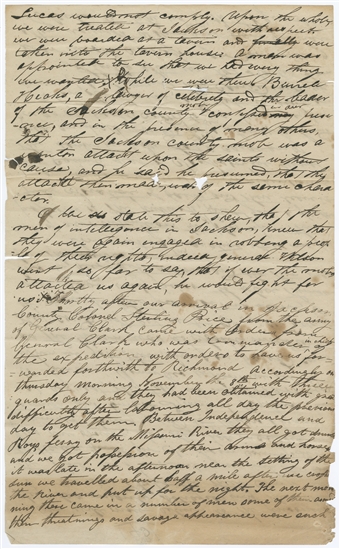 Lucas would not comply. Upon the whole
we were treated at Jackson with respect
we were boarded at a tavern and finally were
taken into the tavern house. A man was
appointed to see that we had every thing
we wanted. While we were there Burrel
Hicks, a lawyer of celebrity and the leader
of the Jackson county in our
ence, and in the presence of many others,
that the Jackson county mob was a
wanton attact upon the saints without
cause, and he said he presumed, that this
attackt then made was of the same chara
cter.
I state this to shew, that the
men of inteligence in Jackson, knew that
they were again engaged in robbing a peo
ple of their rights, indeed general Wilson
went so far to say, that if ever the mob
attacted us again, he would fight for
us. Shortly after our arrival in Jackson
County Colonel Sterling Price from the army
of General Clark came with orders from
General Clark who was commander in chief
the expedition, with orders to have us for
warded forthwith to Richmond accordingly on
thursday morning November the 8th with three
guards only and they had been obtained with great
difficulty after labouring all day the previous
day to get them. Between Independence and
Roys ferry on the Missouri River they all got drunk
and we got possession of their arms and horses
it was late in the afternoon near the setting of the
sun we travelled about half a mile after we crossed
the River and put up for the night. The next mor
ning there came in a number of men some of them armed
their threatnings and savage appearance were such